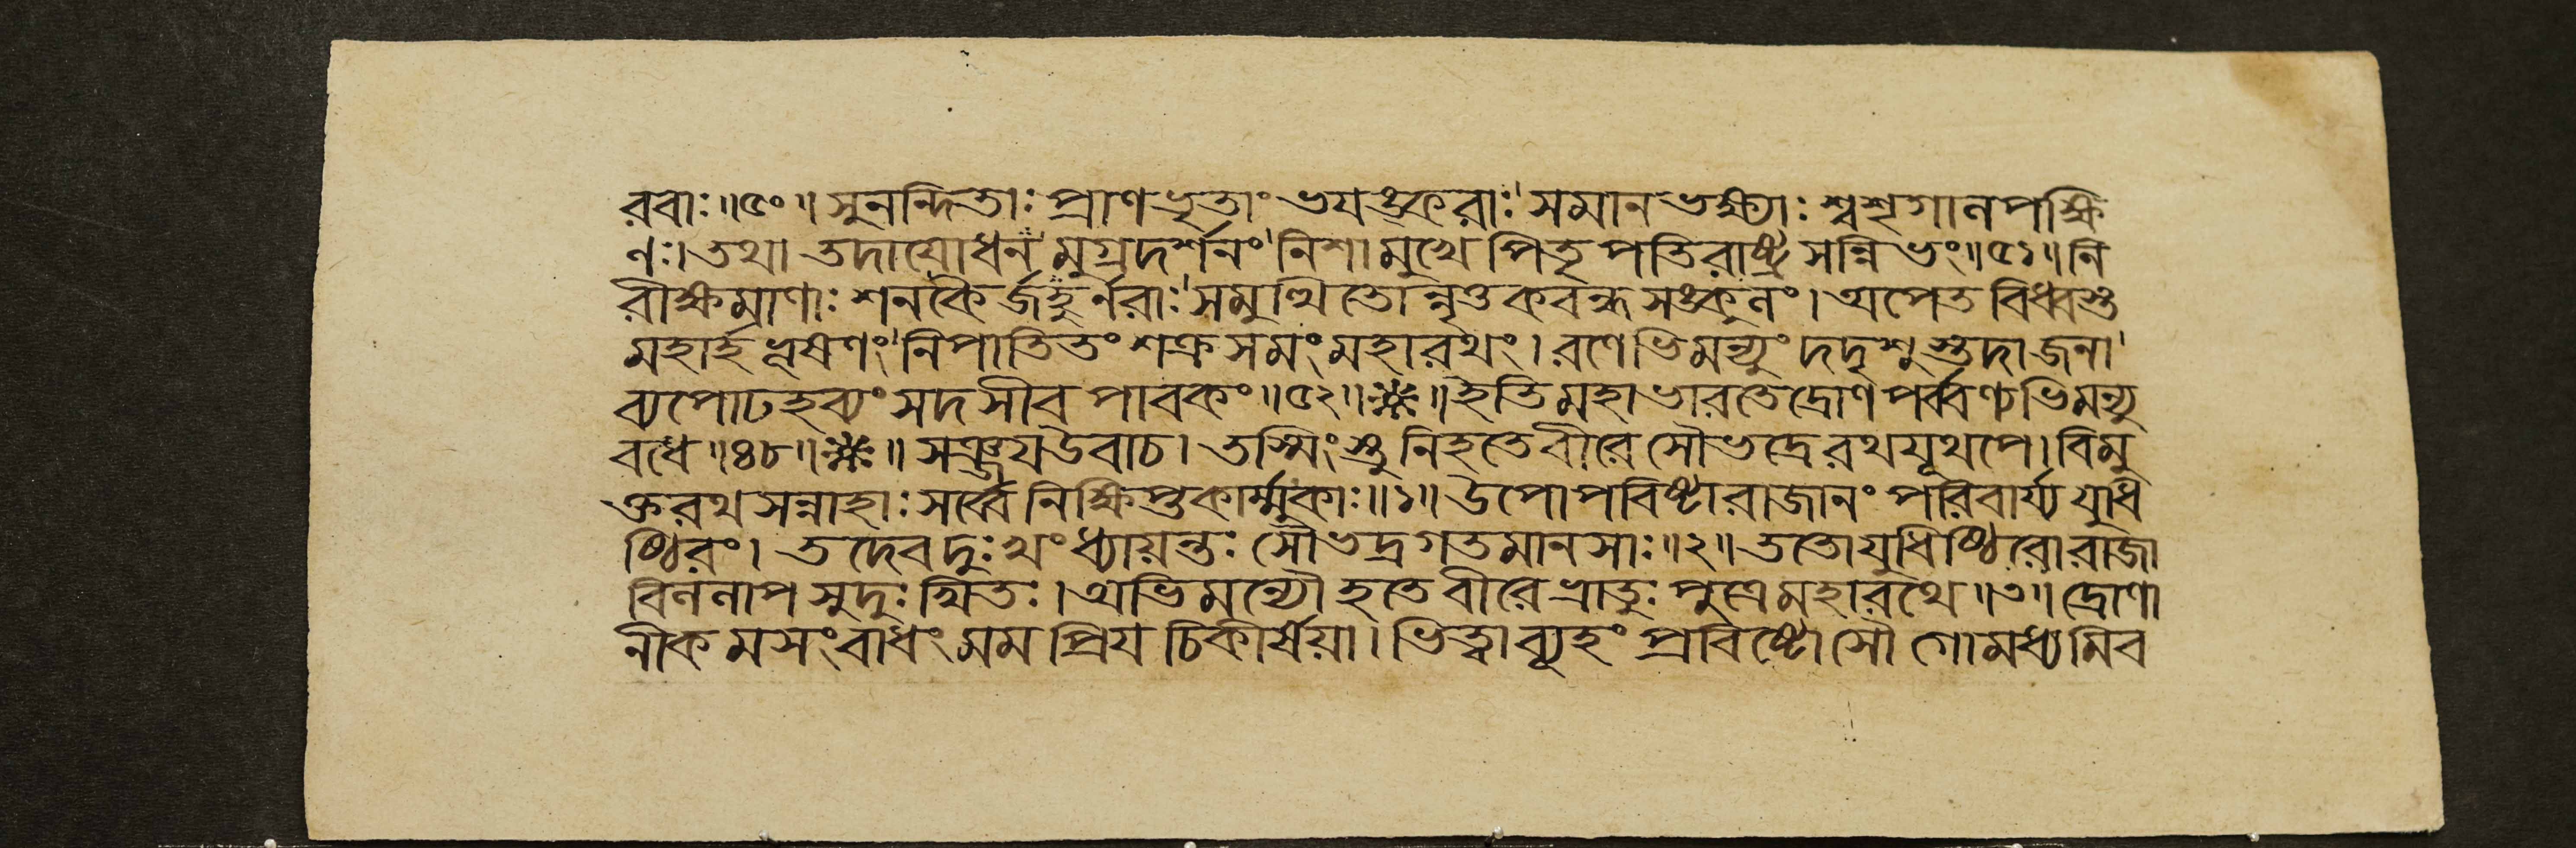 রবাঃ॥৫০॥ সুনন্দিতাঃ প্রাণভৃতাং ভযঙ্করাঃ'সমানভক্ষ্যাঃ শ্বশৃগানপক্ষি
ণঃ। তথা তদাযোধন'মুগ্রদর্শনং'নিশামুখে পিতৃপতিরাষ্ট্রসন্নিভং॥৫১॥ নি
রীক্ষমাণাঃ শনকৈর্জহুর্নরাঃ'সমুত্থিতোন্নৃত্তকবন্ধসঙ্কুনং। অপেতবিধ্বস্ত
মহার্হভূষণং'নিপাতিতং শক্রসমং মহারথং। রণেভিমন্যুং দদৃশুস্তদাজনা'
ব্যপোঢহব্যং সদসীব পাবকং॥৫২॥ঃ॥ ইতি মহাভারতে দ্রোণপর্ব্বণ্যভিমন্যু
বধে॥৪৮॥ঃ॥ সঞ্জয উবাচ। তস্মিংস্তু নিহতে বীরে সৌভদ্রে রথযূথপে। বিমু
ক্তরথসন্নাহাঃ সর্ব্বে নিক্ষিপ্তকার্ম্মুকাঃ॥১॥ উপোপবিষ্টা রাজানং পরিবার্য্য যুধি
ষ্ঠিরং। তদেব দুঃখং ধ্যায়ন্তঃ সৌভদ্রগতমানসাঃ॥২॥ ততো যুধিষ্ঠিরো রাজা
বিননাপ সুদুঃখিতঃ। অভিমন্যৌ হতে বীরে ভ্রাতুঃ পুত্রে মহারথে॥৩॥ দ্রোণা
নীকমসংবাধং মম প্রিয চিকীর্ষয়া। ভিত্ত্বা ব্যূহং প্রবিষ্টোসৌ গোমধ্যমিব